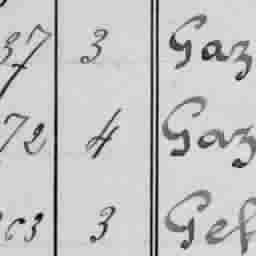 37 3 Gaz
72 4 Gaz
3 Gef